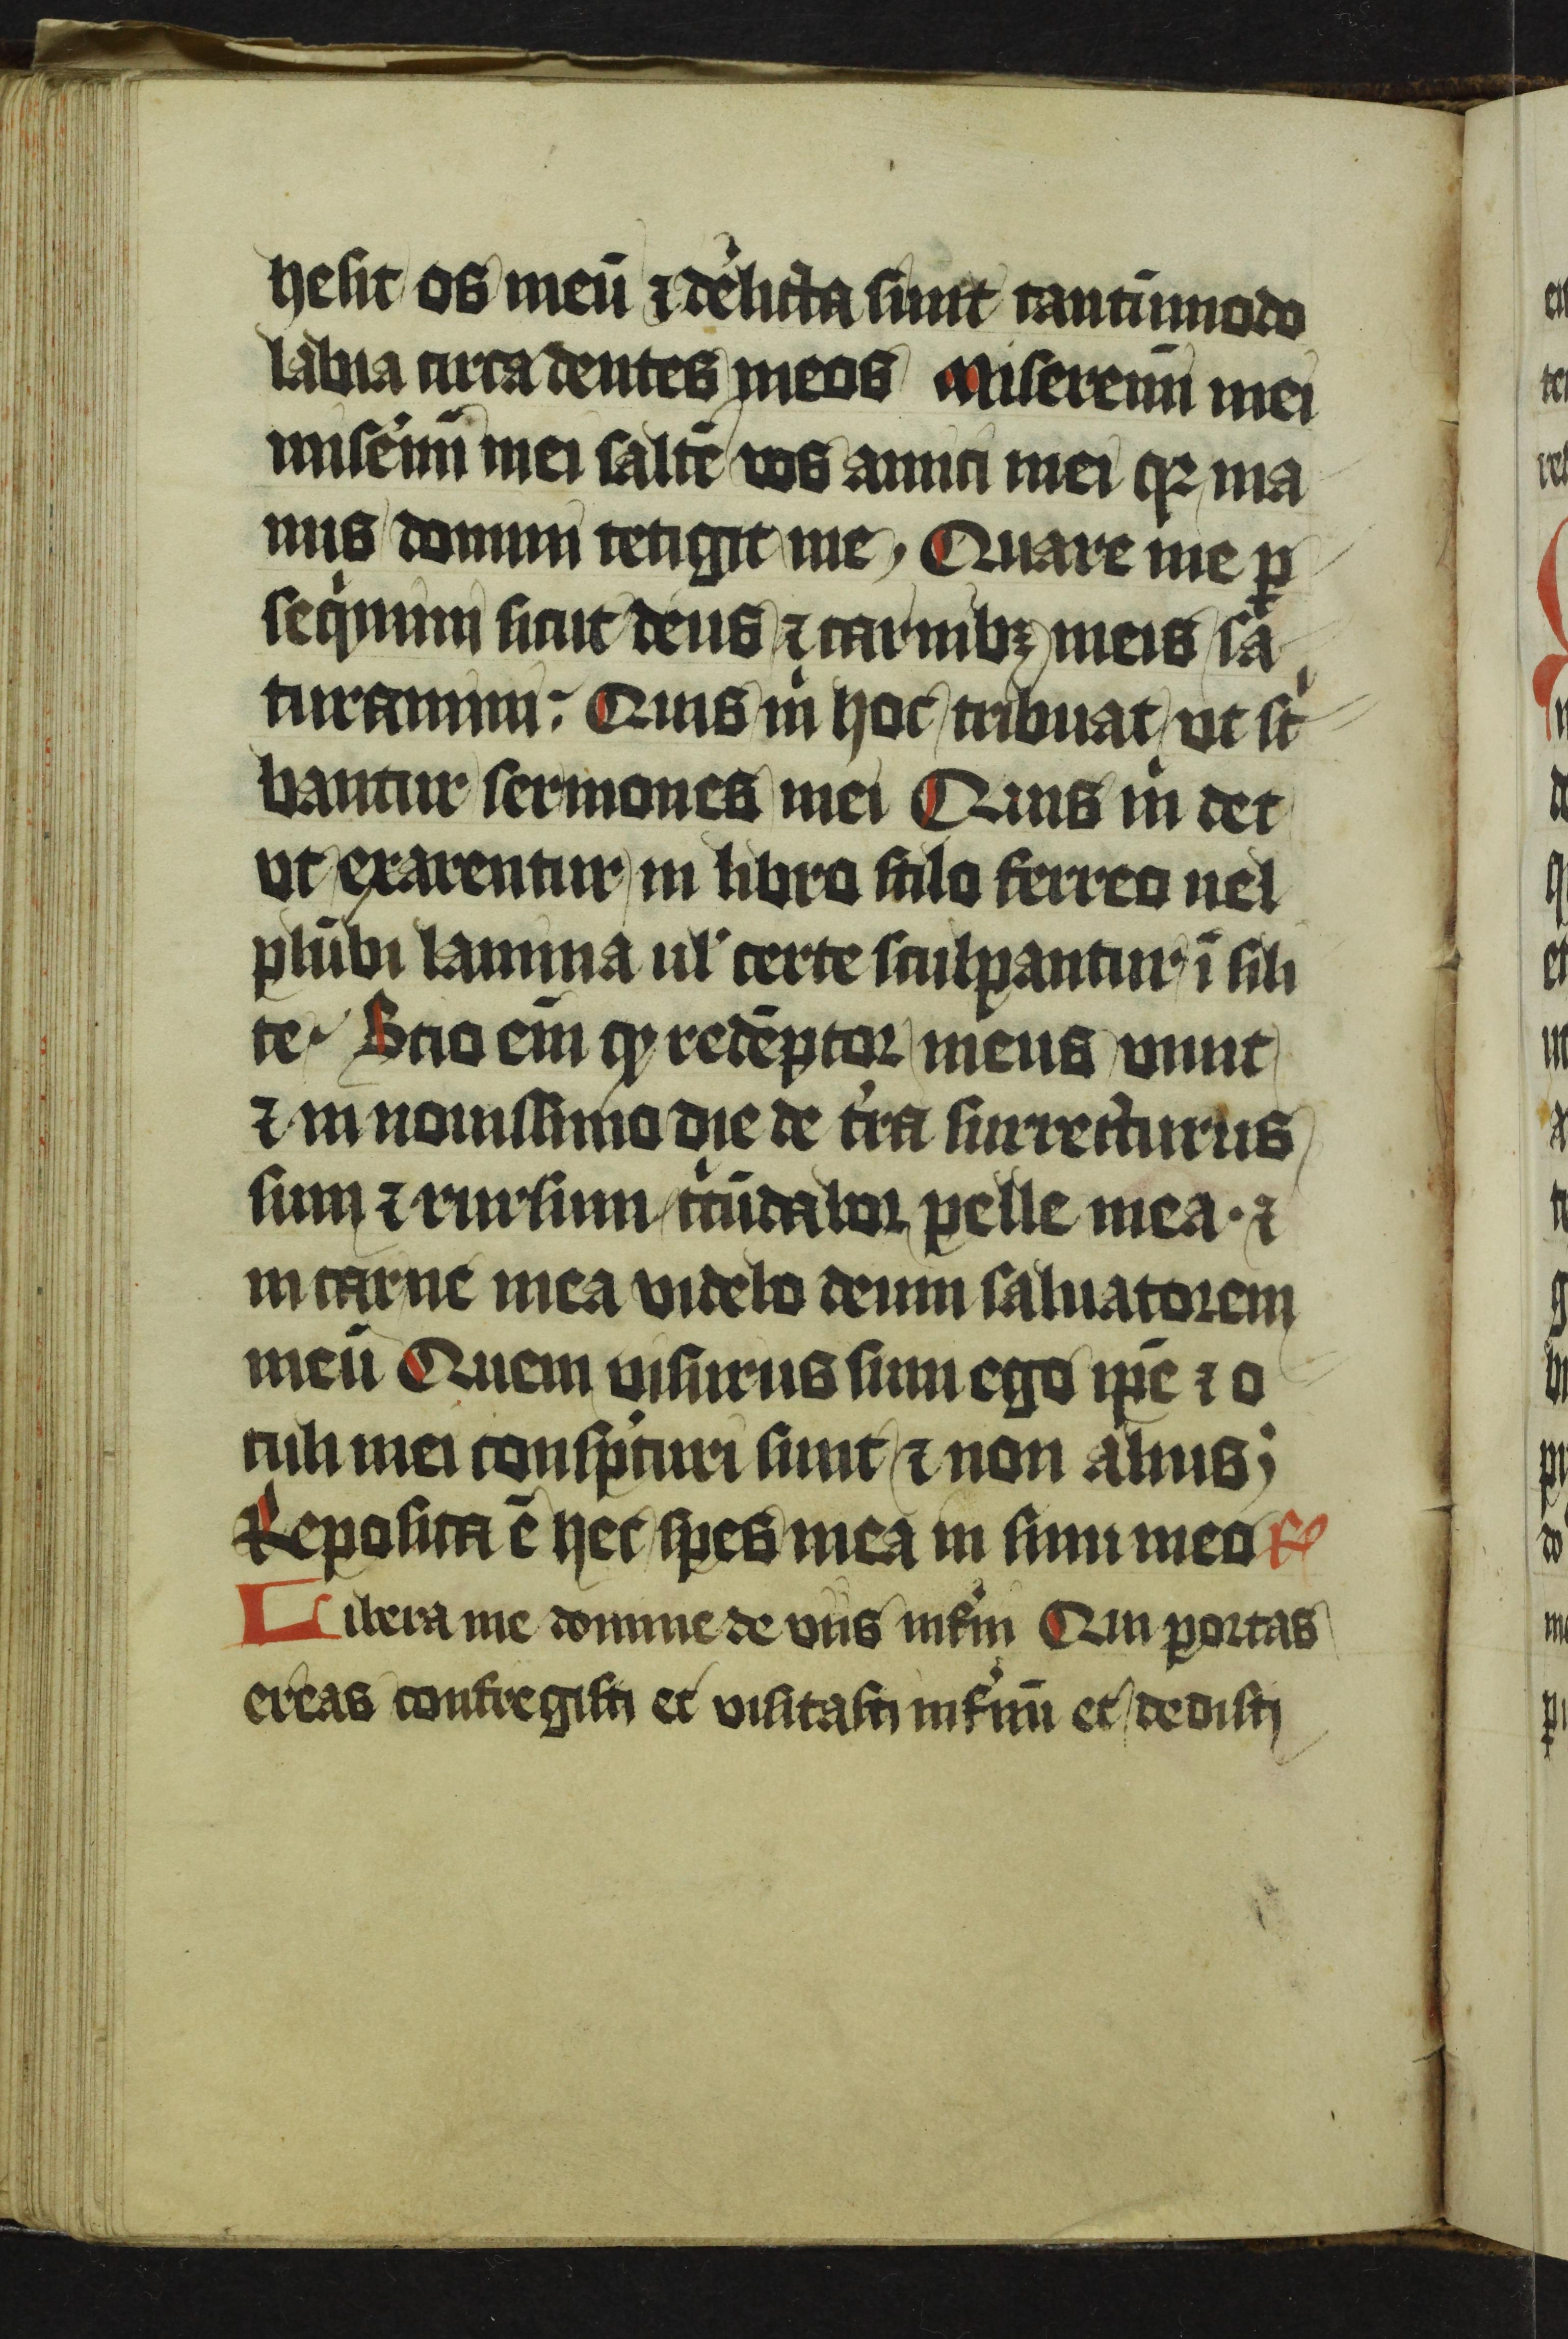 hesit os meū ⁊ derelicta sunt tantūmodo
labia circa dentes meos Miseremī mei
mis̄emī mei saltē vos amici mei qꝛ ma
nus domini tetigit me, Quare me ꝑ
seqimini sicut deus ⁊ carnibꝫ meis sa
turamini: Quis m̄ hoc tribuat vt sc̄
bantur sermones mei Quis m̄ det
vt exarentur in libro stilo ferreo uel
plūbi lamina ul' certe sculpantur ī sili
te. Scio em̄ qꝫ redēptor meus viuit
⁊ in nouissimo die de t̄ra surrecturus
sum ⁊ rursum cc̄ūdabor pelle mea. ⁊
in carne mea videbo deum saluatorem
meū Quem visurus sum ego ip̄e ⁊ o
culi mei consp̄turi sunt ⁊ non alius;
Reposita ē hec spes mea in sinu meo ℟
Libera me domine de viis inf̄ni Qui portas
ereas confregisti et visitasti inf̄nū et dedisti